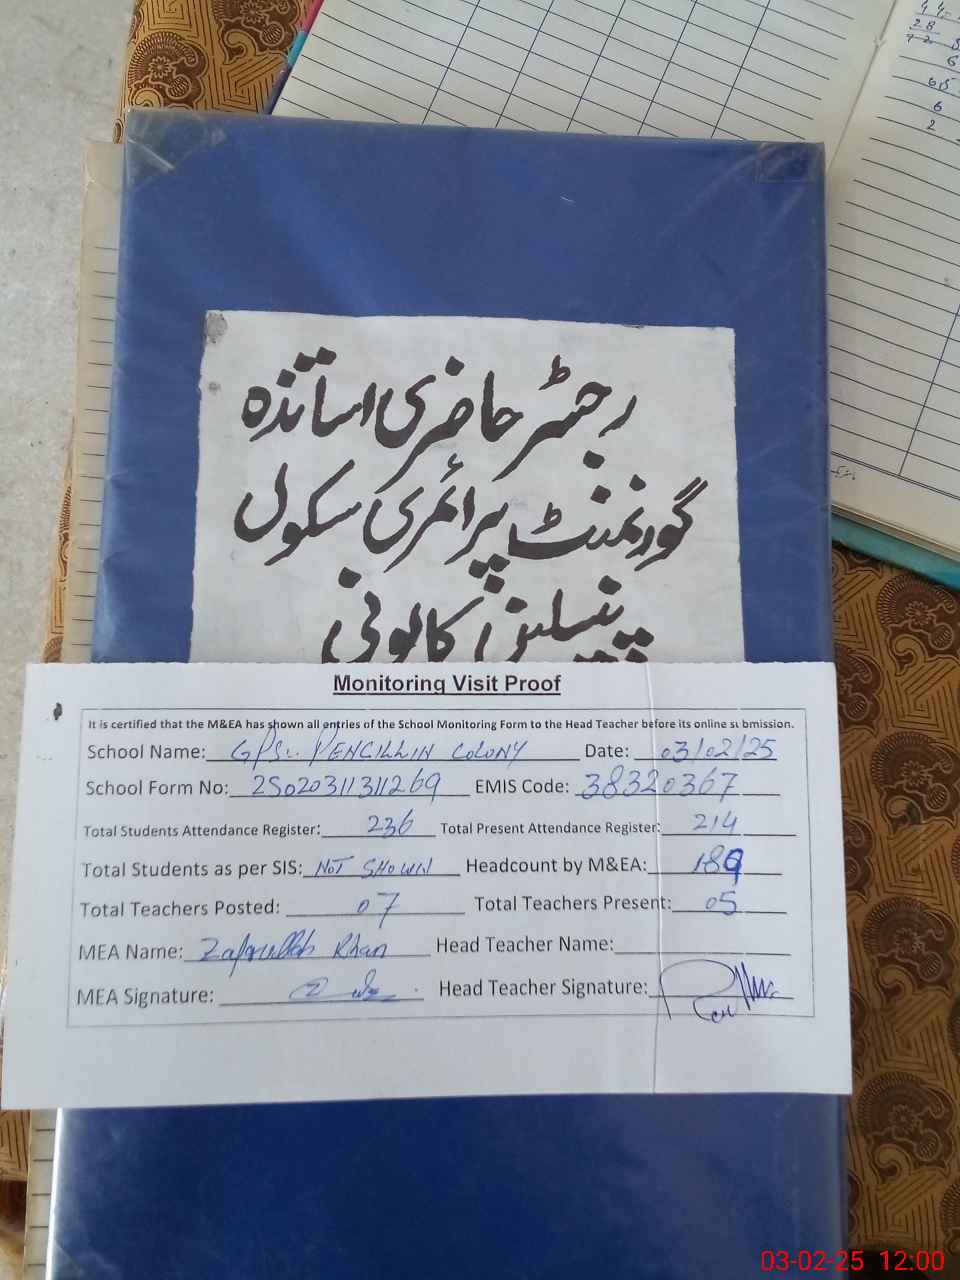 44
28
72
6
65
6
2
رجسٹر حاضری اساتذہ
گورنمنٹ پرائمری سکول
پنسلین کالونی
Monitoring Visit Proof
It is certified that the M&EA has shown all entries of the School Monitoring Form to the Head Teacher before its online submission.
School Name: GPS. PENCILLIN COLONY Date: 03/02/25
School Form No: 25020311311269 EMIS Code: 38320367
Total Students Attendance Register: 236 Total Present Attendance Register: 214
Total Students as per SIS: NOT SHOWN Headcount by M&EA: 189
Total Teachers Posted: 07 Total Teachers Present: 05
MEA Name: Zafarullah Khan Head Teacher Name:
MEA Signature: Head Teacher Signature:
03-02-25 12:00